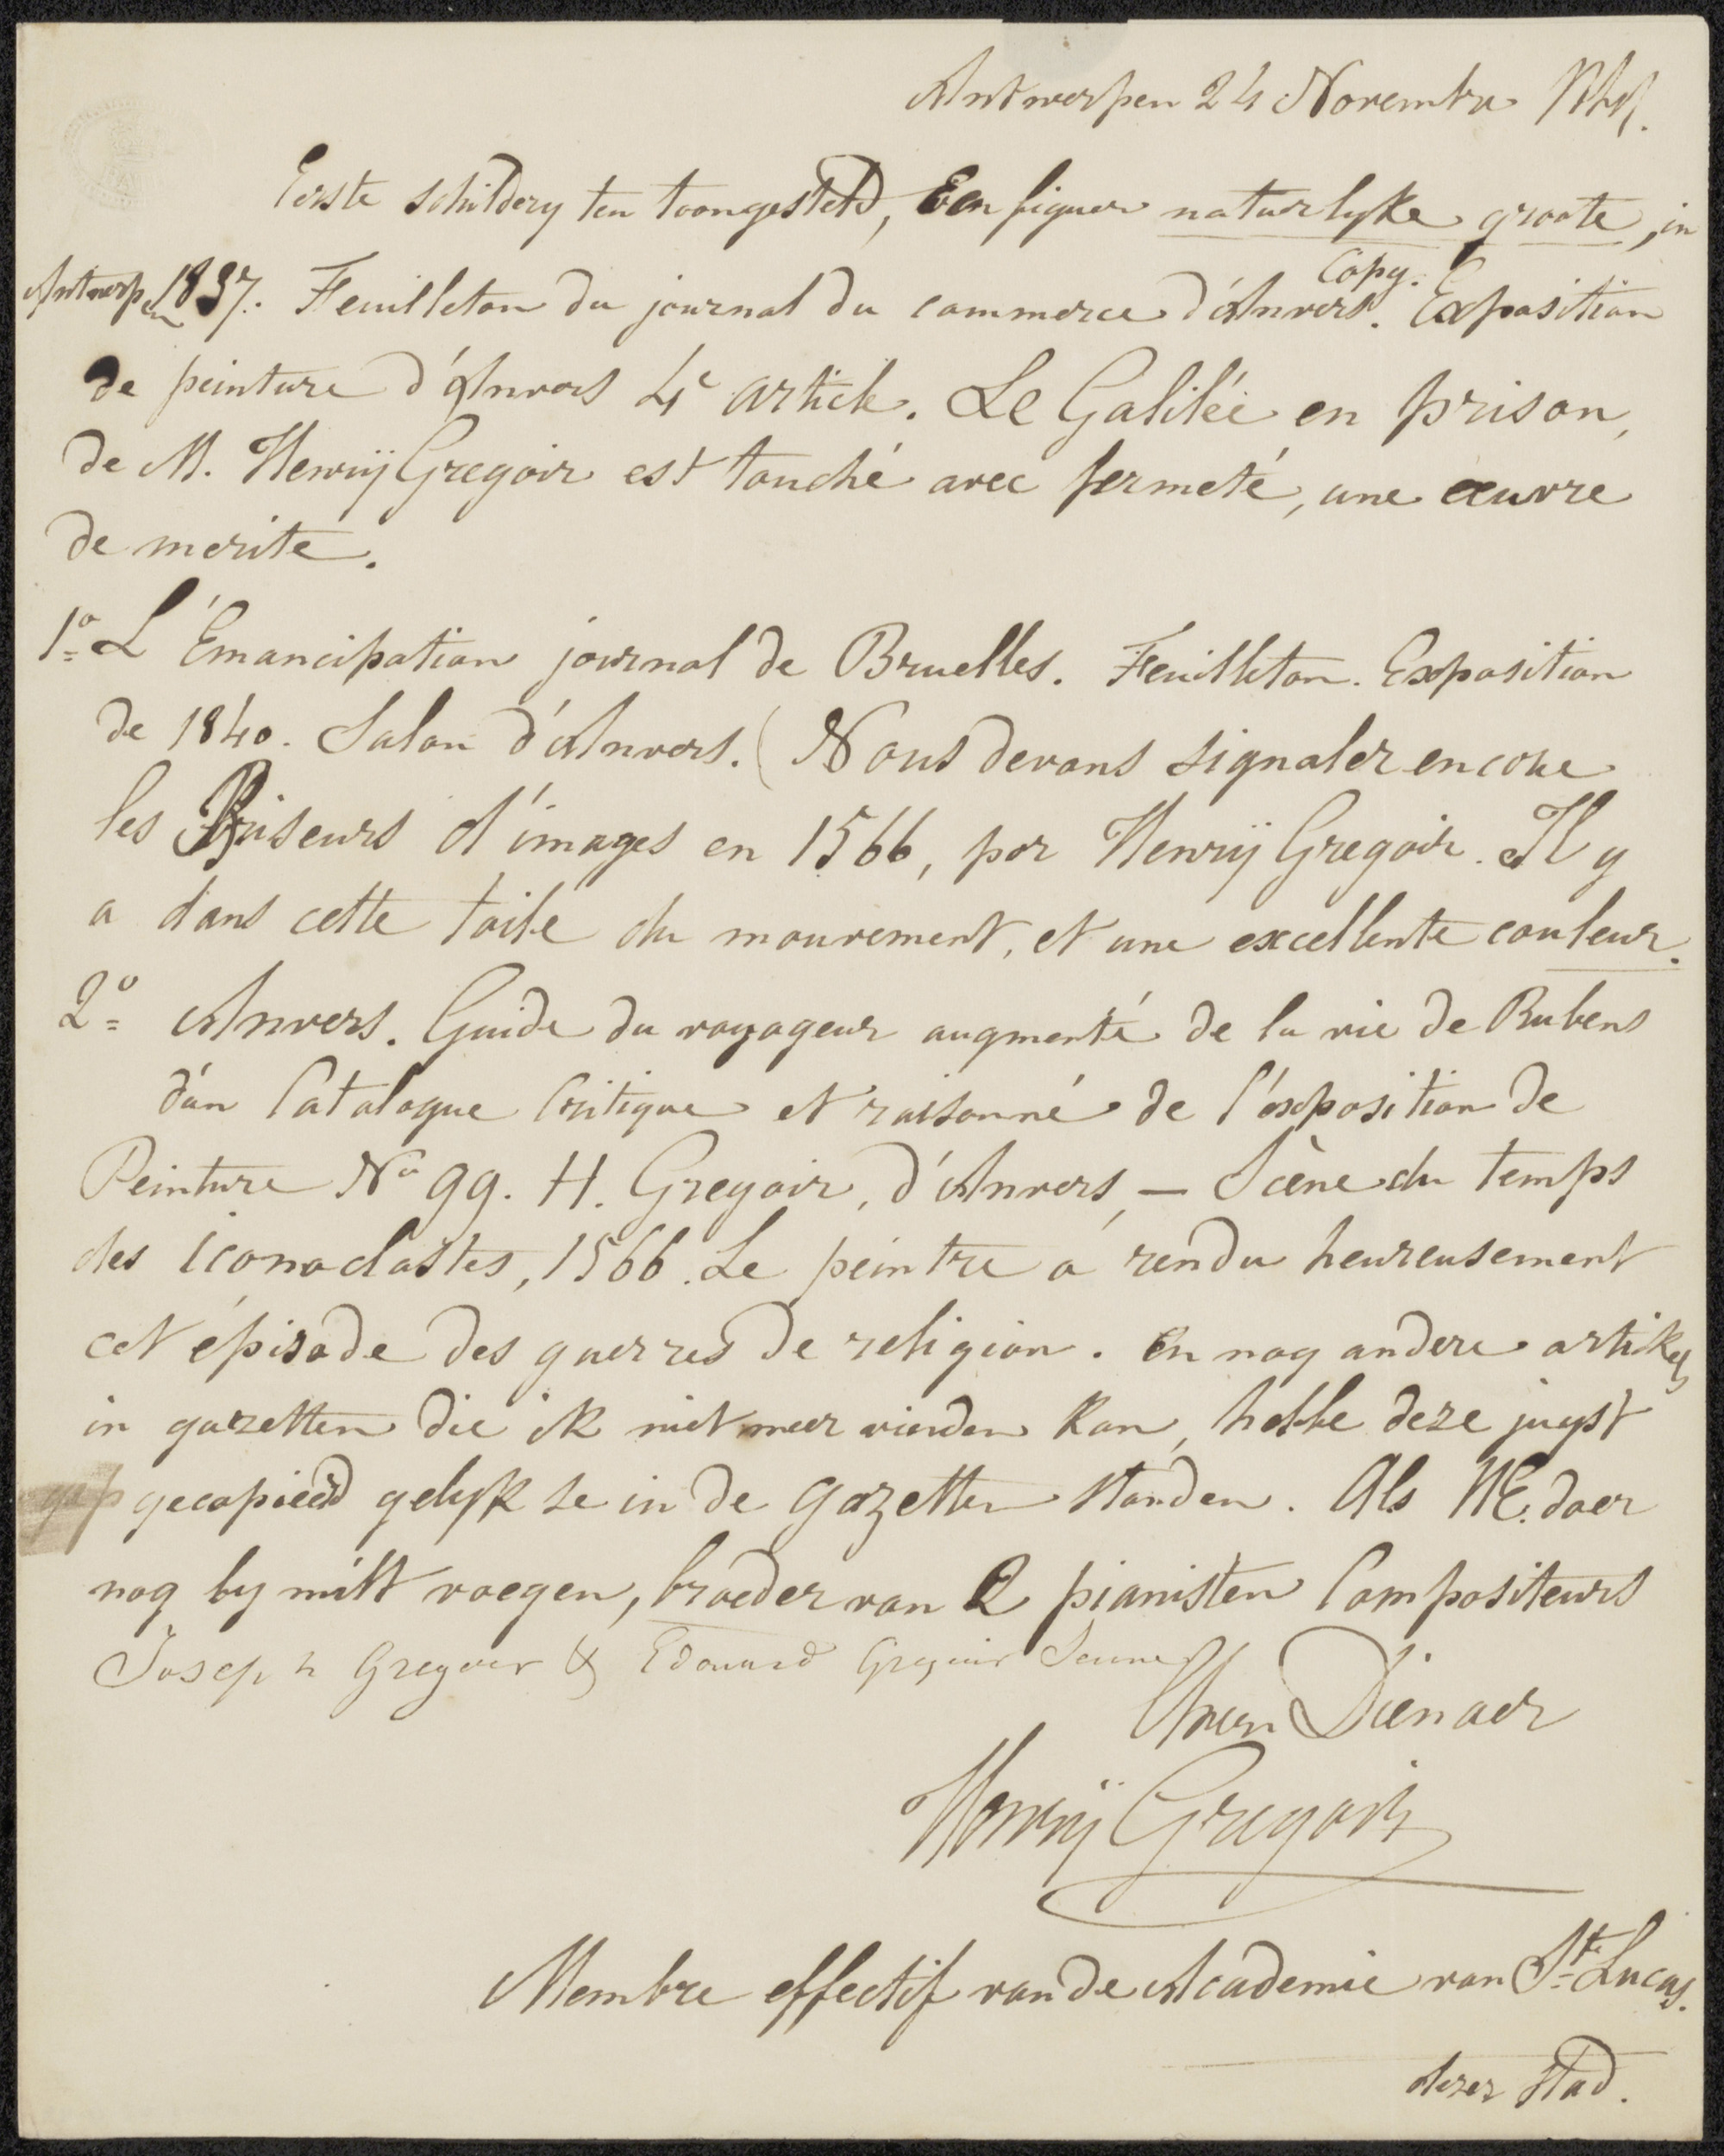 Antwerpen 24 November
Eerste schildery ten toongesteld, Een figuer naturlyke groote, in
Antwerpen 1837. Feuilleton du journal du commerce d'Anvers. Copy. Exposition
de peinture d'Anvers 4e article. Le Galilée en prison,
de M. Henrÿ Gregoir est touché avec fermeté, une œuvre
de merite.
1o L'Émancipation journal de Bruelles. Feuilleton. Exposition
de 1840. Salon d'Anvers. (Nous devons signaler encore
les Briseurs d'images en 1566, par Henrÿ Gregoir. Il y
a dans cette toile du mouvement, et une excellente couleur.
2o Anvers. Guide du voyageur augmenté de la vie de Rubens
d'un Catalogue Critique et raisonné de l'éxposition de
Peinture No 99. H. Gregoir, d'Anvers, — Scène du temps
des iconoclastes, 1566. Le peintre a rendu heureusement
cet épisode des guerres de religion. En nog andere artikels
in gazetten die ik niet meer vinden kan, hebbe deze juyst
gecopieèrd gelyk se in de gazetten standen. Als UE. daer
nog by wilt voegen, broeder van 2 pianisten Compositeurs
Joseph Gregoir & Edouard Gregoir Jeune
Uwen Dienaer
Henrÿ Gregoir
Membre effectif van de Academie van St. Lucas.
dezer Stad.